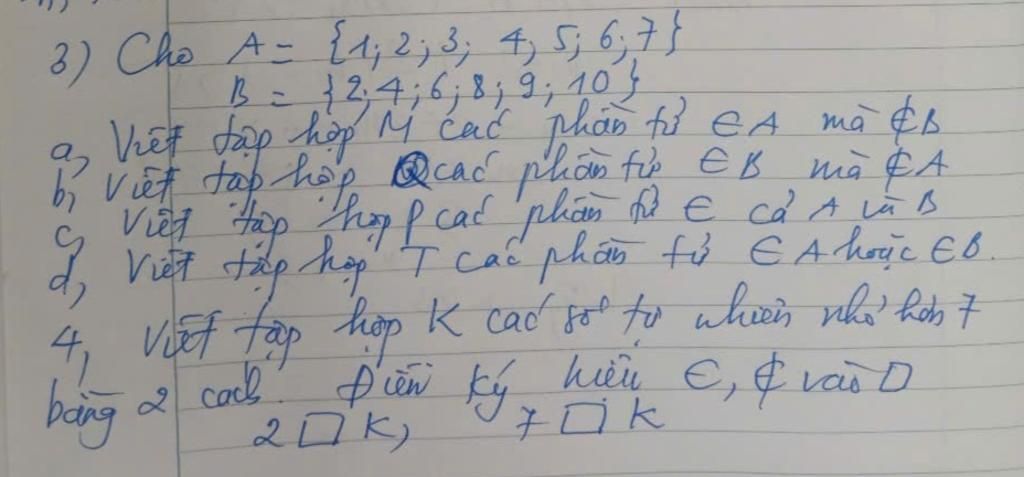 3) Cho A = {1; 2; 3; 4; 5; 6; 7}
B = {2; 4; 6; 8; 9; 10}
a, Viết tập hợp M các phần tử ∈ A mà ∉ B
b, Viết tập hợp Q các phần tử ∈ B mà ∉ A
c, Viết tập hợp P các phần tử ∈ cả A và B
d, Viết tập hợp T các phần tử ∈ A hoặc ∈ B.
4, Viết tập hợp K các số tự nhiên nhỏ hơn 7
bằng 2 cách. Điền ký hiệu ∈, ∉ vào □
2 □ K, 7 □ K